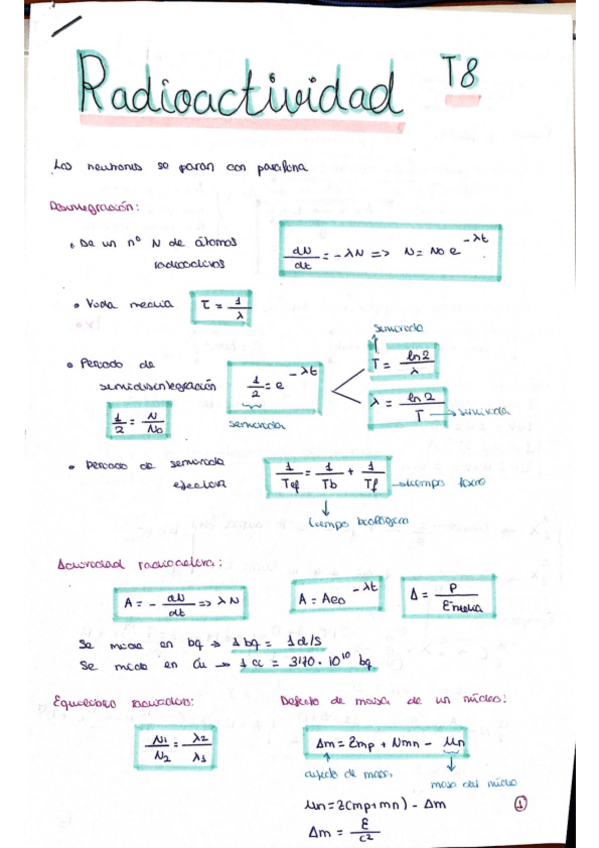 Radioactividad T8
Los neutrones se paran con parafina
Desintegración:
• De un nº N de átomos
radioactivos
dN/dt = -λN => N = No e^-λt
• Vida media τ = 1/λ
semivida
• Periodo de
semidesintegración
1/2 = e^-λt
T = ln2/λ
λ = ln2/T → semivida
1/2 = N/No
semivida
• Periodo de semivida
efectiva
1/Tef = 1/Tb + 1/Tf → tiempo físico
tiempo biológico
Actividad radioactiva:
A = - dN/dt => λN
A = Aeo^-λt
Δ = P/Emedia
Se mide en bq → 1 bq = 1 d/s
Se mide en Cu → 1 ci = 3'70 · 10^10 bq
Equilibrio radiactivo:
Defecto de masa de un núcleo:
N1/N2 = λ2/λ1
Δm = Zmp + Nmn - Mn
defecto de masa
masa del núcleo
Mn = Z(mp+mn) - Δm
Δm = E/c²
1